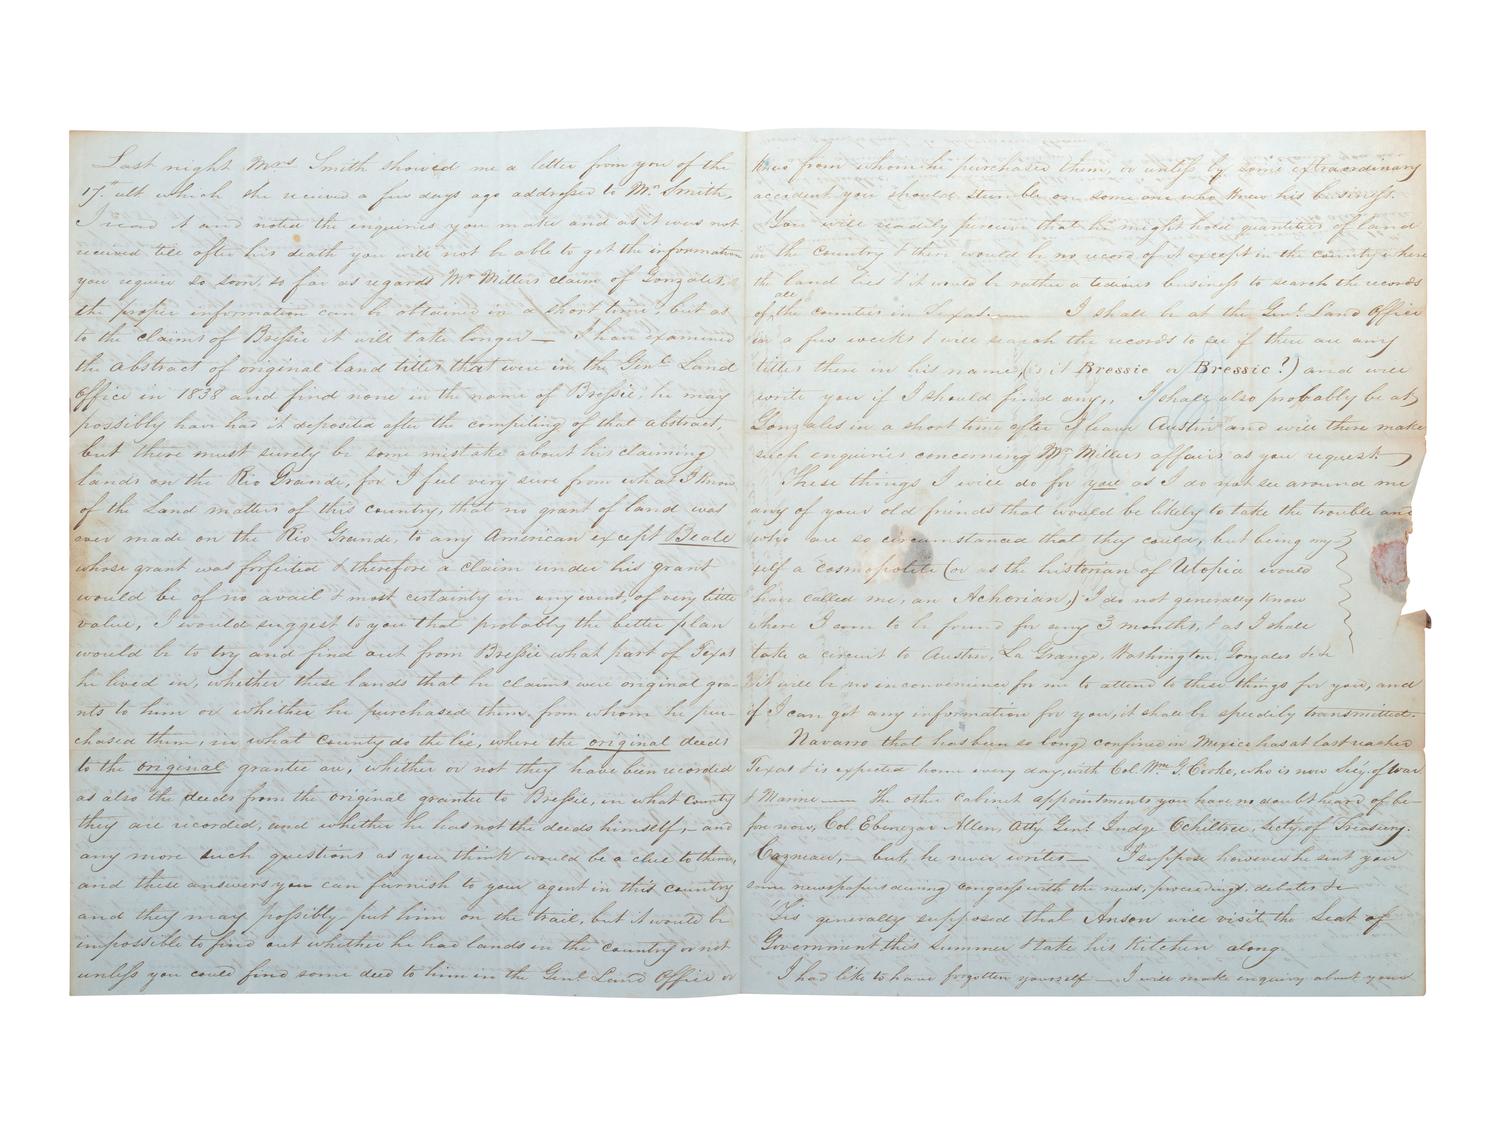 Last night Mrs Smith showed me a letter from you of the
17th ult which she received a few days ago addressed to Mr Smith,
I read it and noted the enquiries you make and as it was not
received till after his death you will not be able to get the information
you require so soon, so far as regards Mr Millers claim of Gonzales,
the proper information can be obtained in a short time, but as
to the claims of Bressie it will take longer — I have examined
the abstract of original land titles that were in the Genl Land
Office in 1838 and find none in the name of Bressie, he may
possibly have had it deposited after the compiling of that abstract,
but there must surely be some mistake about his claiming
lands on the Rio Grande, for I feel very sure from what I know
of the Land matters of this country, that no grant of land was
ever made on the Rio Grande, to any American except Beale
whose grant was forfeited & therefore a claim under his grant
would be of no avail & most certainly in any event, of very little
value, I would suggest to you that probably the better plan
would be to try and find out from Bressie what part of Texas
he lived in, whether these lands that he claims were original gra-
nts to him or whether he purchased them, from whom he pur-
chased them, in what County do the lie, where the original deeds
to the original grantee are, whether or not they have been recorded
as also the deeds from the original grantee to Bressie, in what County
they are recorded, and whether he has not the deeds himself, - and
any more such questions as you think would be a clue to them,
and these answers you can furnish to your agent in this country
and they may possibly put him on the trail, but it would be
impossible to find out whether he had lands in the country or not
unless you could find some deed to him in the Genl Land Office or
knew from whom he purchased them, or unless by some extraordinary
accident you should stumble on some one who knew his business.
You will readily perceive that he might hold quantities of land
in the Country & there would be no record of it except in the county where
the land lies & it would be rather a tedious business to search the records
of all the counties in Texas. — I shall be at the Genl Land Office
in a few weeks & will search the records to see if there are any
titles there in his name, (is it Bressie or Bressic?) and will
write you if I should find any,, I shall also probably be at
Gonzales in a short time after I leave Austin and will there make
such enquiries concerning Mr Millers affairs as you request.
These things I will do for you as I do not see around me
any of your old friends that would be likely to take the trouble and
who are so circumstanced that they could, but being my-
self a cosmopolite (or as the historian of Utopia would
have called me, an Achorian,) I do not generally know
where I am to be found for any 3 months, & as I shall
take a circuit to Austin, La Grange, Washington, Gonzales &c &c
it will be no inconvenience for me to attend to these things for you, and
if I can get any information for you, it shall be speedily transmitted.
Navarro that has been so long confined in Mexico has at last reached
Texas & is expected home every day, with Col. Wm G. Cooke, who is now Secy. of War
& Marine — The other cabinet appointments you have no doubt heard of be-
fore now, Col. Ebenezar Allen, Atty Genl Judge Ochiltree, Secty. of Treasury.
Cazneau, - but, he never writes — I suppose however he sent you
some newspapers during congress with the news, proceedings, debates &c
'Tis generally supposed that Anson will visit the Seat of
Government this summer & take his Kitchen along
I had like to have forgotten yourself — I will make enquiry about your